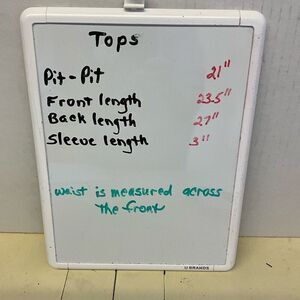 Tops
Pit-Pit 21"
Front length 23.5"
Back length 27"
Sleeve length 3"
waist is measured across
the front
U BRANDS